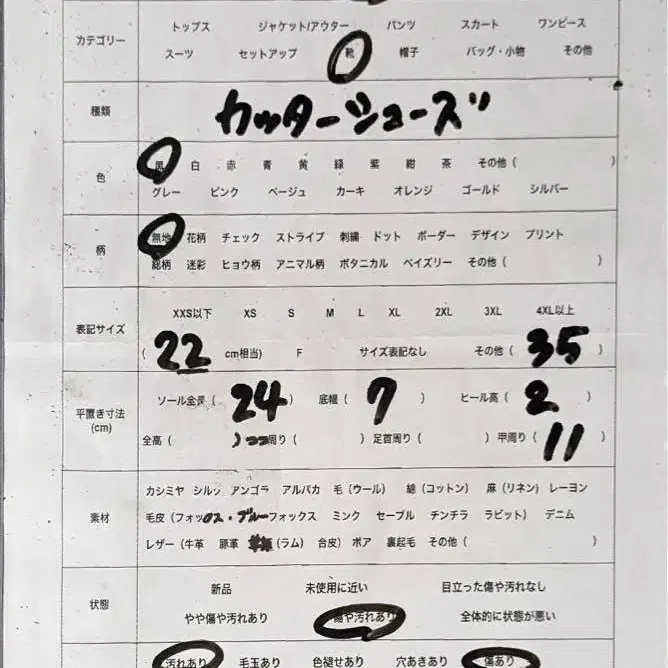 カテゴリー トップス ジャケット/アウター パンツ スカート ワンピース
スーツ セットアップ 靴 帽子 バッグ・小物 その他
種類 カッターシューズ
色 黒 白 赤 青 黄 緑 紫 紺 茶 その他 ( )
グレー ピンク ベージュ カーキ オレンジ ゴールド シルバー
柄 無地 花柄 チェック ストライプ 刺繍 ドット ボーダー デザイン プリント
総柄 迷彩 ヒョウ柄 アニマル柄 ボタニカル ペイズリー その他 ( )
表記サイズ XXS以下 XS S M L XL 2XL 3XL 4XL以上
( 22 cm相当) F サイズ表記なし その他 ( 35 )
平置き寸法 (cm) ソール全長 ( 24 ) 底幅 ( 7 ) ヒール高 ( 2 )
全高 ( ) 周り ( ) 足首周り ( ) 甲周り ( 11 )
素材 カシミヤ シルク アンゴラ アルパカ 毛 (ウール) 綿 (コットン) 麻 (リネン) レーヨン
毛皮 (フォックス・ブルーフォックス ミンク セーブル チンチラ ラビット) デニム
レザー (牛革 豚革 (ラム) 合皮) ボア 裏起毛 その他 ( )
状態 新品 未使用に近い 目立った傷や汚れなし
やや傷や汚れあり 傷や汚れあり 全体的に状態が悪い
汚れあり 毛玉あり 色褪せあり 穴あきあり 傷あり